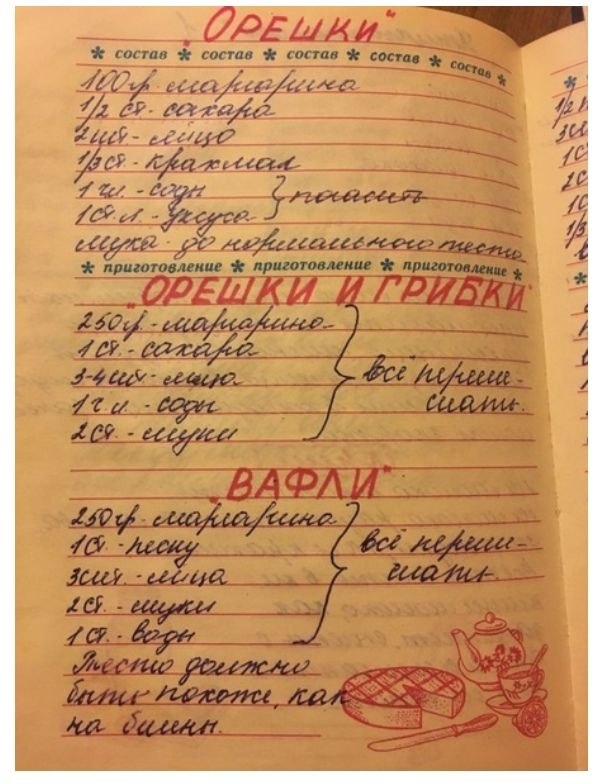 "ОРЕШКИ"
* состав * состав * состав * состав * состав *
100гр. маргарина
1/2 ст. - сахара
2шт - яйцо
1/3 ст. - крахмал
1 ч.л. - соды } погасить
1 ст. л. - уксуса
мука - до нормального теста
* приготовление * приготовление * приготовление *
"ОРЕШКИ И ГРИБКИ"
250гр. - маргарина
1 ст. - сахара
3-4 шт. - яйца } всё переме-
1 ч. л. - соды шать.
2 ст. - муки
"ВАФЛИ"
250гр. маргарина
1 ст. - песку } всё переме-
3шт. - яйца шать.
2 ст. - муки
1 ст. - воды
Тесто должно
быть похоже, как
на блины.